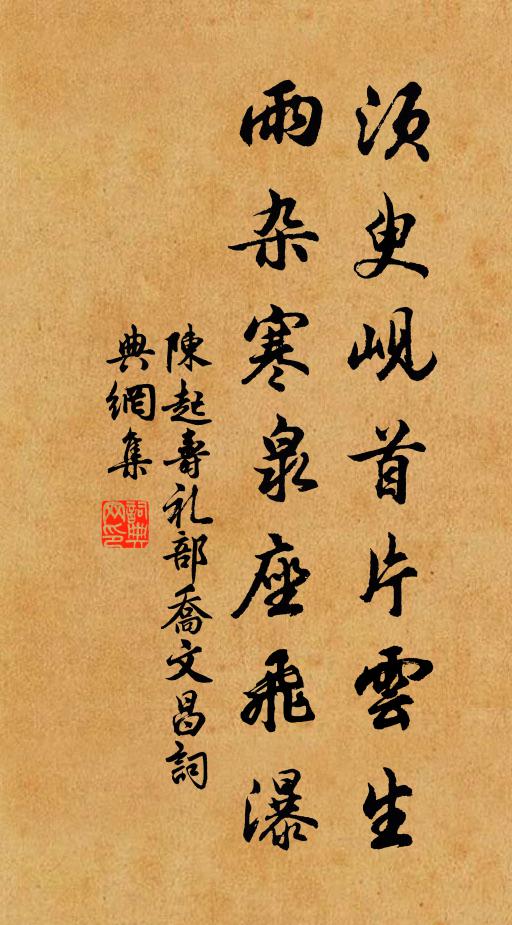 須叟峴首片雲生
雨杂寒泉座飛瀑
陳起壽礼部喬文昌詞
典網集
詞典网印